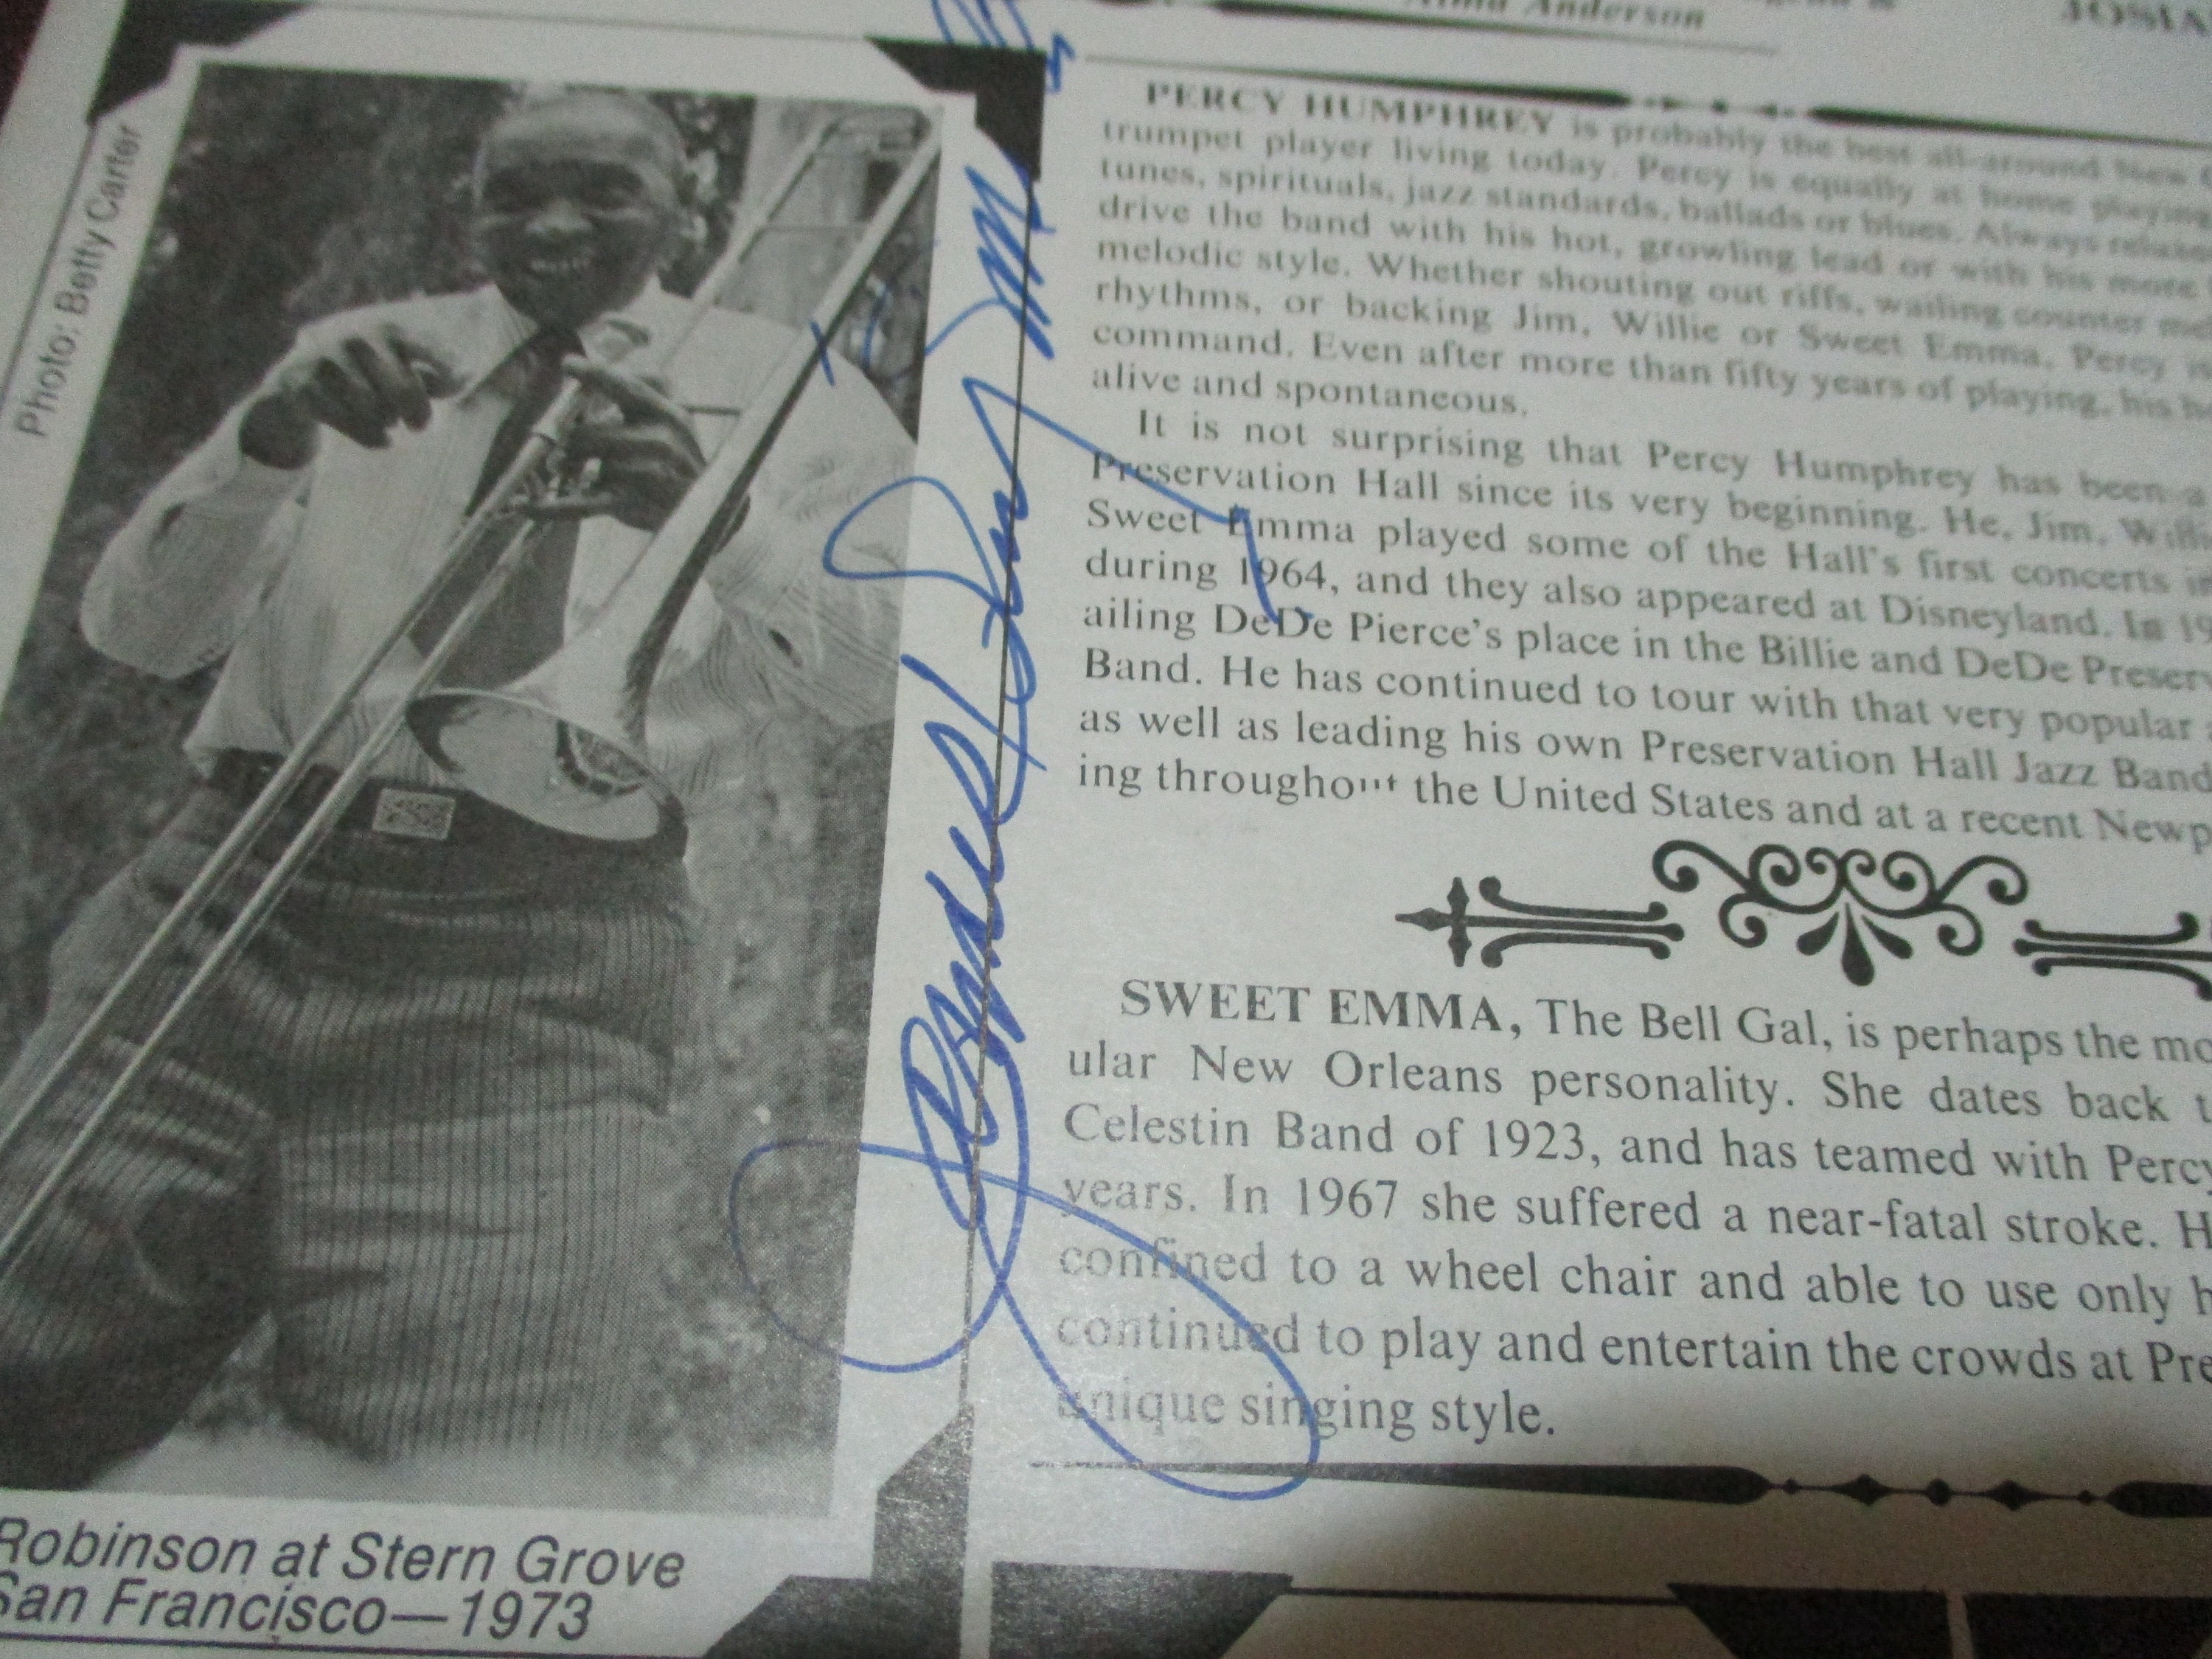 Anderson
Photo: Betty Carter
PERCY HUMPHREY is probably the best all-around New
trumpet player living today. Percy is equally at home playing
tunes, spirituals, jazz standards, ballads or blues. Always
drive the band with his hot, growling lead or with his more
melodic style. Whether shouting out riffs, wailing counter
rhythms, or backing Jim, Willie or Sweet Emma, Percy
command. Even after more than fifty years of playing, his
alive and spontaneous.
It is not surprising that Percy Humphrey has been
Preservation Hall since its very beginning. He, Jim,
Sweet Emma played some of the Hall's first concerts
during 1964, and they also appeared at Disneyland. In 19
ailing DeDe Pierce's place in the Billie and DeDe Preserv
Band. He has continued to tour with that very popular
as well as leading his own Preservation Hall Jazz Band
ing throughout the United States and at a recent Newp
SWEET EMMA, The Bell Gal, is perhaps the mo
ular New Orleans personality. She dates back t
Celestin Band of 1923, and has teamed with Percy
years. In 1967 she suffered a near-fatal stroke. H
confined to a wheel chair and able to use only h
continued to play and entertain the crowds at Pre
unique singing style.
Robinson at Stern Grove
San Francisco—1973